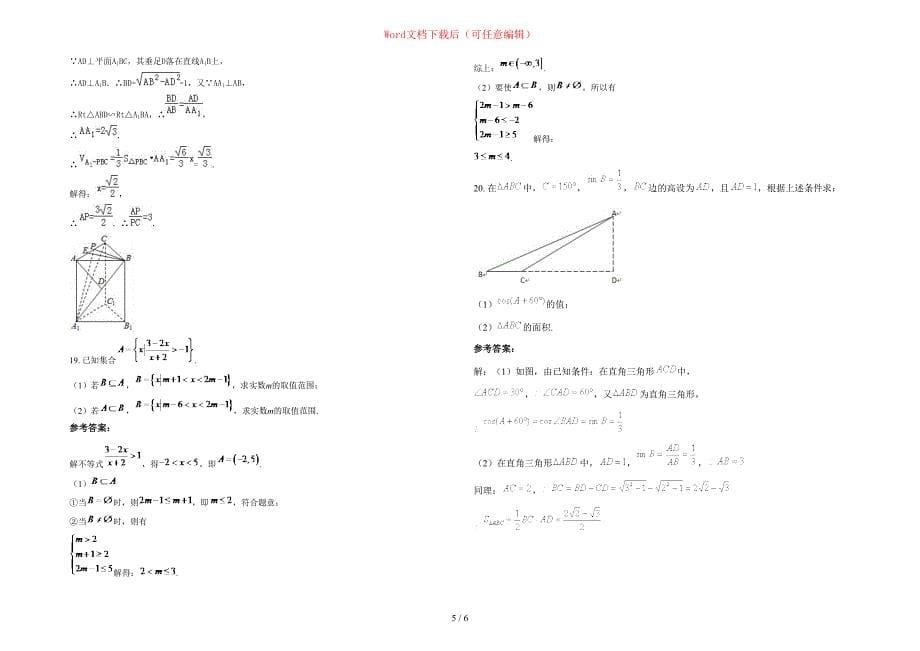 Word文档下载后（可任意编辑）
∵AD⊥平面A₁BC，其垂足D落在直线A₁B上，
∴AD⊥A₁B．∴BD=√(AB²-AD²)=1，又∵AA₁⊥AB，
∴Rt△ABD∽Rt△A₁BA，∴BD/AB=AD/AA₁，
∴AA₁=2√3．
∴V_{A₁-PBC}=1/3 S△PBC•AA₁=√6/3 x=√3/3．
解得：x=√2/2，
∴AP=3√2/2．∴AP/PC=3．
C
P
E
A B
D
C₁
A₁ B₁
19. 已知集合A={x|(3-2x)/(x+2)>-1}．
（1）若B⊆A，B={x|m+1<x<2m-1}，求实数m的取值范围；
（2）若A⊂B，B={x|m-6<x<2m-1}，求实数m的取值范围．
参考答案：
解不等式(3-2x)/(x+2)>1，得-2<x<5，即A=(-2,5)．
（1）B⊆A
①当B=∅时，则2m-1≤m+1，即m≤2，符合题意；
②当B≠∅时，则有
{m>2
m+1≥2
2m-1≤5 解得：2<m≤3．
综上：m∈(-∞,3]．
（2）要使A⊂B，则B≠∅，所以有
{2m-1>m-6
m-6≤-2
2m-1≥5 解得：
3≤m≤4．
20. 在△ABC中，C=150°，sin B=1/3，BC边的高设为AD，且AD=1，根据上述条件求：
A
B C D
（1）cos(A+60°)的值；
（2）△ABC的面积．
参考答案：
解：（1）如图，由已知条件：在直角三角形ACD中，
∠ACD=30°，∴∠CAD=60°，又△ABD为直角三角形，
∴cos(A+60°)=cos∠BAD=sin B=1/3
（2）在直角三角形ABD中，AD=1，sin B=AD/AB=1/3，∴AB=3
同理：AC=2，∴BC=BD-CD=√(3²-1)-√(2²-1)=2√2-√3
∴S△ABC=1/2 BC·AD=(2√2-√3)/2
5 / 6